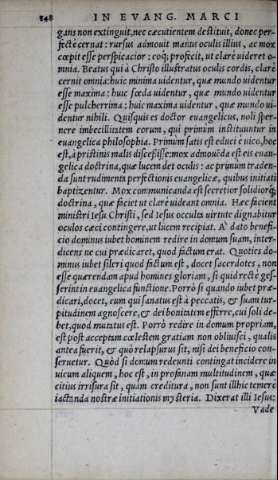 348 IN EVANG. MARCI
gans non extinguit, nec cæcutientem destituit, donec per-
fectè cernat: rursus admouit manus oculis illius, ac mox
cœpit esse perspicacior: eoq; profecit, ut clarè uideret o-
mnia. Beatus qui à Christo illustratus oculis cordis, clarè
cernit omnia: huic minima uidentur, quæ mundo uidentur
esse maxima: huic fœda uidentur, quæ mundo uidentur
esse pulcherrima: huic maxima uidentur, quæ mundo ui-
dentur nihili. Quisquis es doctor euangelicus, noli sper-
nere imbecillitatem eorum, qui primùm instituuntur in
euangelica philosophia. Primùm satis est educi è uico, hoc
est, à pristinis malis discessisse: mox admouēda est eis euan
gelica doctrina, quæ lucem det oculis: ac primùm traden-
da sunt rudimenta perfectionis euangelicæ, quibus initiati
baptizentur. Mox communicanda est secretior solidiorq;
doctrina, quæ faciet ut clarè uideant omnia. Hæc faciunt
ministri Iesu Christi, sed Iesus occulta uirtute dignabitur
oculos cæci contingere, ut lucem recipiat. A' dato benefi-
cio dominus iubet hominem redire in domum suam, inter-
dicens ne cui prædicaret, quod factum erat. Quoties do-
minus iubet sileri quod factum est, docet sacerdotes, non
esse quærendam apud homines gloriam, si quid rectè ges-
serint in euangelica functione. Porrò si quando iubet præ-
dicari, docet, eum qui sanatus est à peccatis, & suam tur-
pitudinem agnoscere, & dei bonitatem efferre, cui soli de-
bet, quod mutatus est. Porrò redire in domum propriam,
est post acceptam cœlestem gratiam non obliuisci, qualis
antea fuerit, & quò relapsurus sit, nisi dei beneficio con-
seruetur. Quòd si domum redeunti contingat incidere in
uicum aliquem, hoc est, in profanam multitudinem, quæ
citius irrisura sit, quàm creditura, non sunt illhic temere
iactanda nostræ initiationis mysteria. Dixerat illi Iesus:
Vade